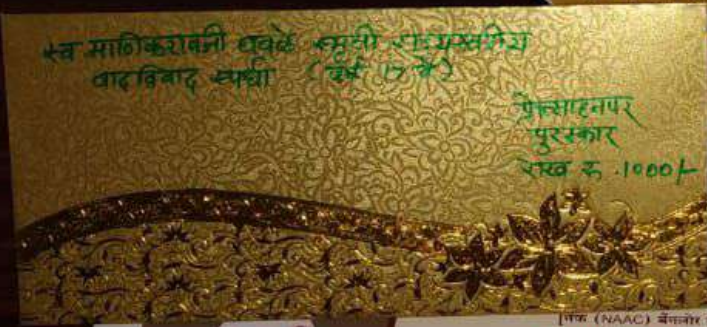 स्व माणिकरावजी घवळे स्मृती राज्यस्तरीय
वादविवाद स्पर्धा (वर्ष 17 वे)
प्रोत्साहनपर
पुरस्कार
रोख रु. 1000/-
(NAAC) बेंगलोर